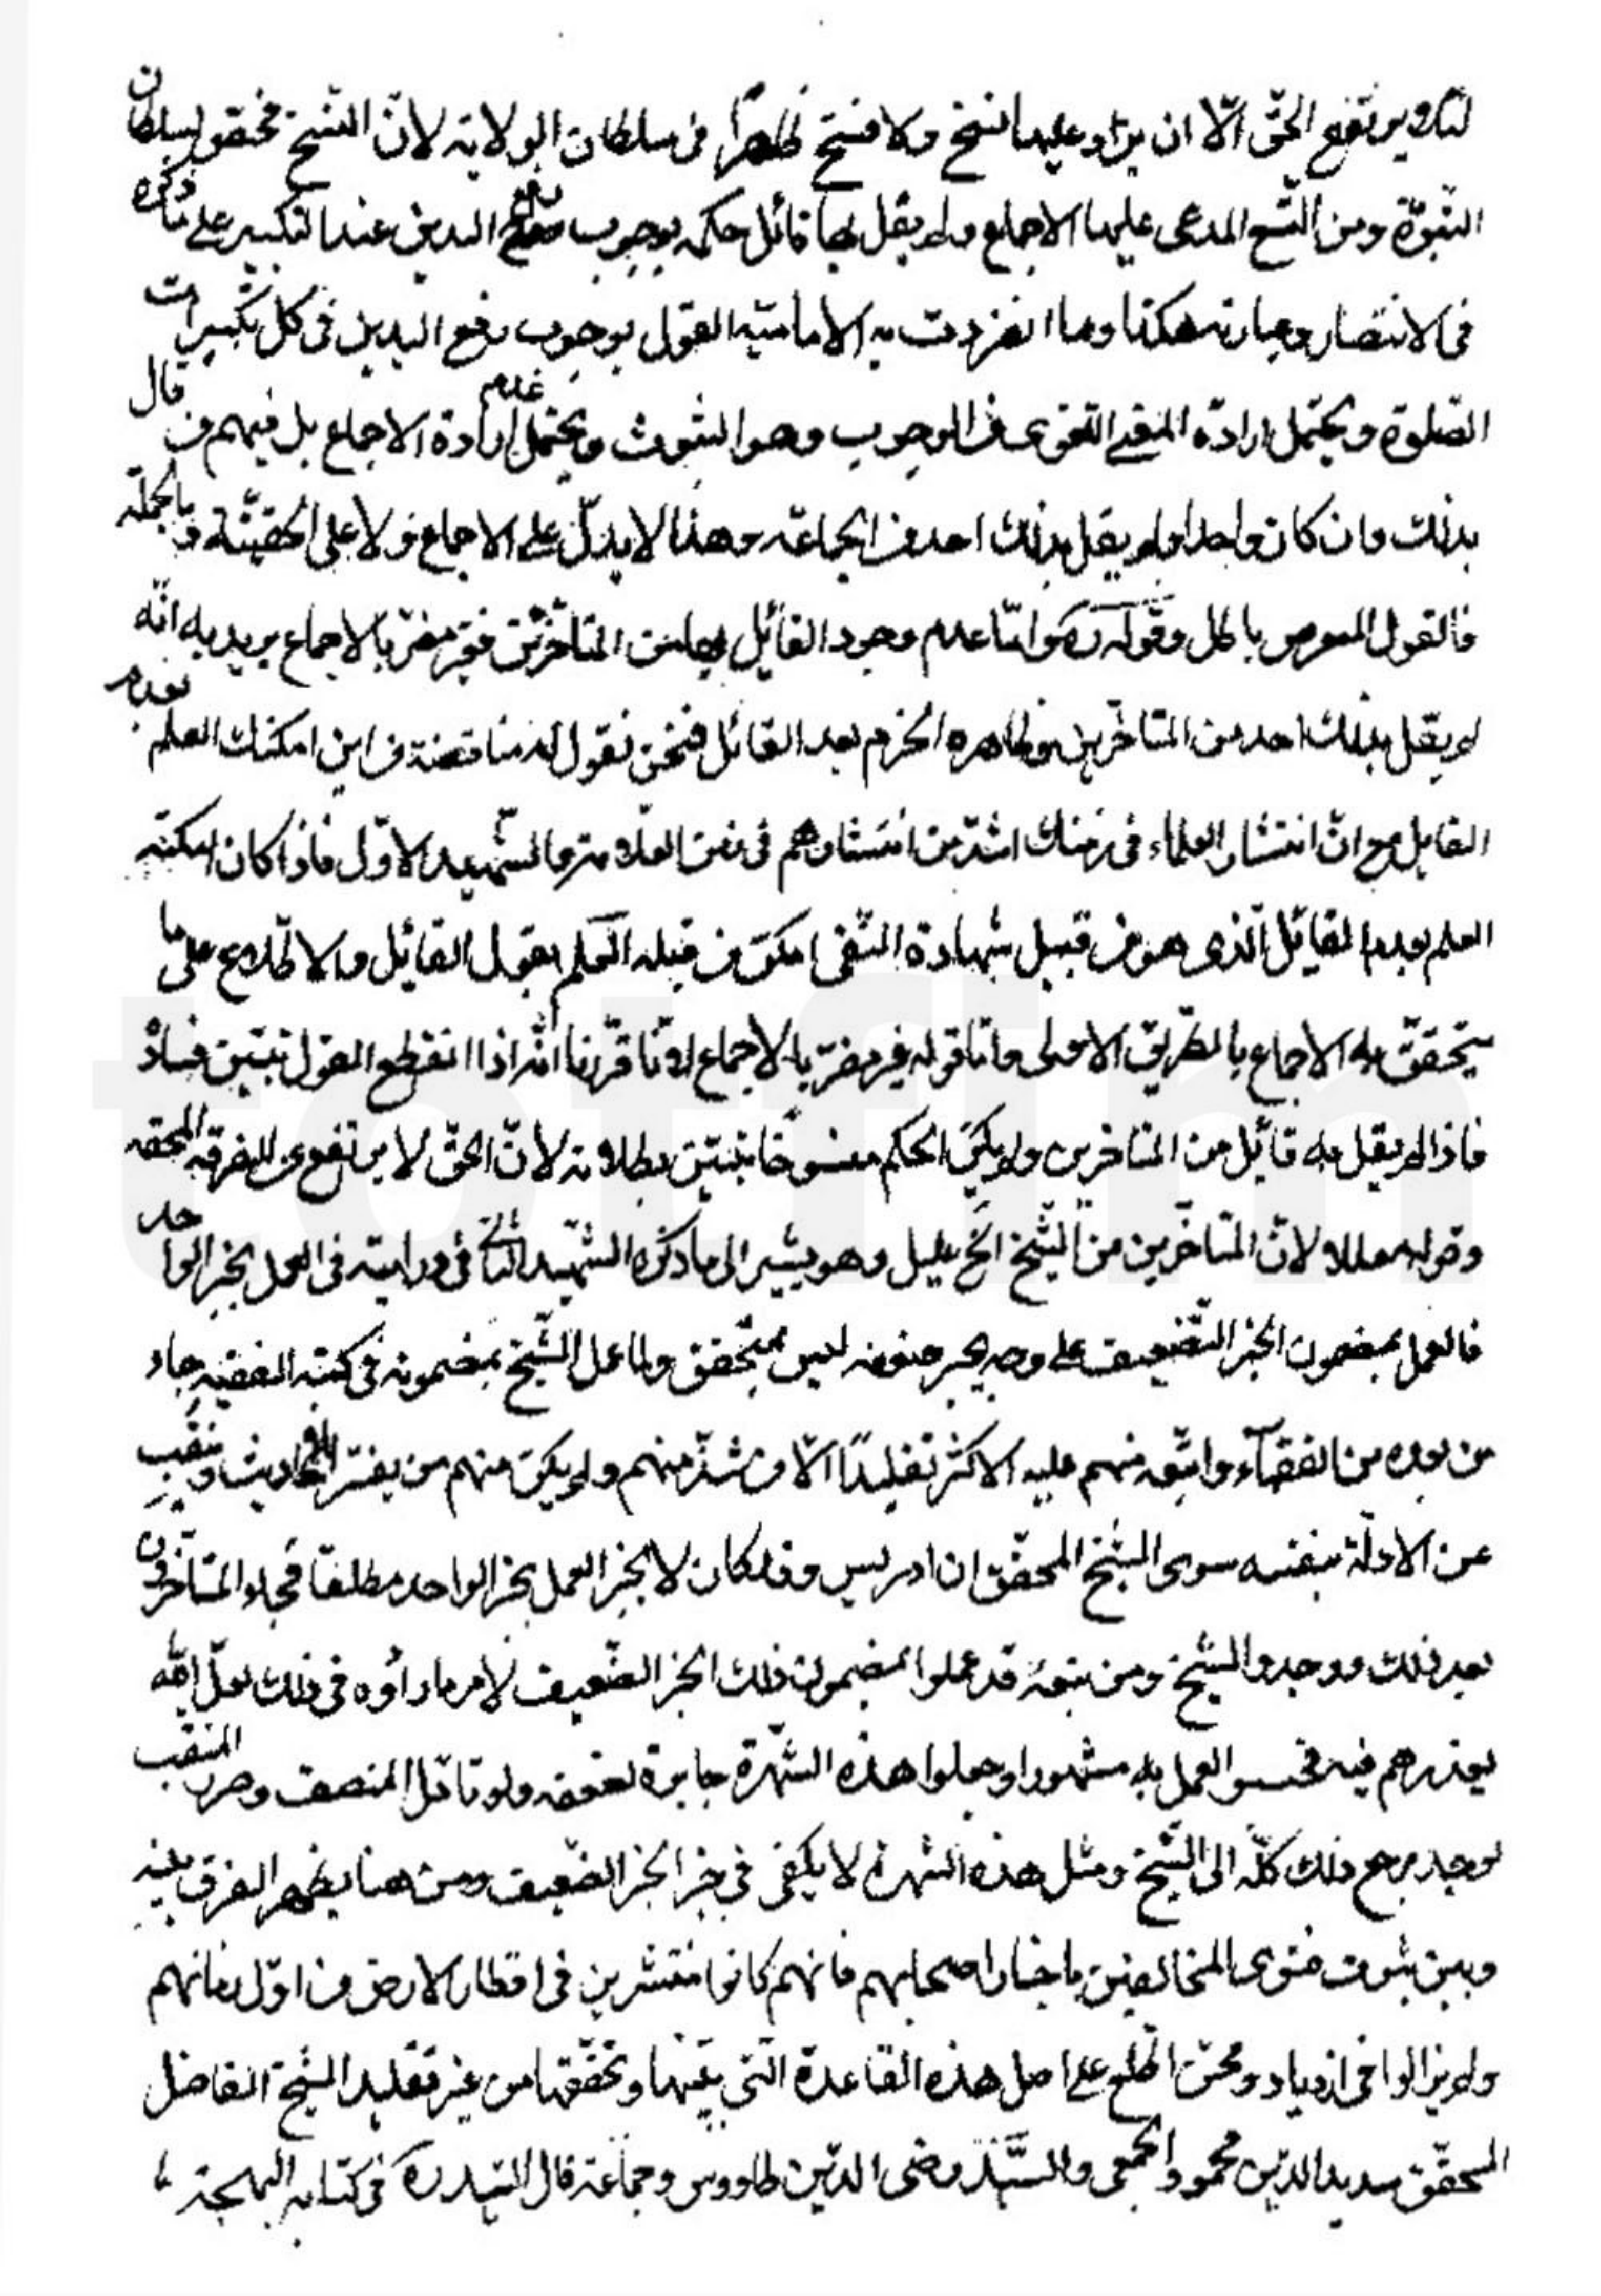 يرتفع الحق الّا ان يراد عليها نسخ ولا فسخ ظاهراً فى سلطان الولاية لانّ النسخ مختص بسلطان
النبوّة ومن النسخ المدعى عليها الاجماع ولم يقل بها قائل حكمه بوجوب رفع اليدين عند التكبير على ما ذكره
فى الانتصار وعبارته هكذا وما انفردت به الامامية القول بوجوب رفع اليدين فى كل تكبيرات
الصّلوة ويحتمل ارادة اللغوى من الوجوب وهو الثبوت ويحتمل عدم ارادة الاجماع بل فيهم من قال
بذلك وان كان واحدا ولم يقل بذلك احد من الجماعة وهذا لا يدلّ على الاجماع ولا على الحقيّة وبالجملة
فالقول المعروض باطل وقوله ره وامّا عدم وجود القائل بها من المتاخّرين فغير مضرّ بالاجماع يريد به انّه
لم يقل بذلك احد من المتاخّرين وظاهره الجزم بعدم القائل فنحن نقول له مناقضة من اين امكنك العلم بعدم
القايل مع انّ انتشار العلماء فى زمنك اشدّ من انتشارهم فى زمن العلامة والشّهيد الاوّل فاذا كان امكنه
العلم بعدم القائل الّذى هو من قبيل شهادة النّفى امكن من قبله العلم بقول القائل والاطلاع على ما
يتحقّق به الاجماع بالطّريق الاولى وامّا قوله غير مضرّ بالاجماع لانّا قرّرنا انّه اذا انقطع القول تبيّن فساده
فاذا لم يقل به قائل من المتاخرين ولم يكن الحكم منسوخًا تبيّن بطلانه لانّ الحقّ لا يرتفع عن الفرقة المحقه
وقوله معللا ولانّ المتاخّرين من الشّيخ الخ عليل وهو يشير الى ما ذكره الشّهيد الثانى فى درايته فى العمل بخبر الواحد
فالعمل بمضمون الخبر الضّعيف على وجه يجبر ضعفه ليس بمتحقق ولما عمل الشّيخ بمضمونه فى كتبه الفقهيه جاء
من بعده من الفقهآء واتبعه منهم عليه الاكثر تقليدًا الّا من شذّ منهم ولم يكن منهم من يسبر الاحاديث وينقب
عن الادلّة بنفسه سوى الشيخ المحقّق ابن ادريس وقد كان لا يجيز العمل بخبر الواحد مطلقاً فجاء المتاخّرون
بعد ذلك ووجدوا الشّيخ ومن تبعه قد عملوا بمضمون ذلك الخبر الضّعيف لامر ما رأوه فى ذلك لعلّ الله
يعذرهم فيه فحسبوا العمل به مشهورا وجعلوا هذه الشّهرة جابرة لضعفه ولو تامّل المنصف وحرر المنقب
لوجد مرجع ذلك كلّه الى الشّيخ ومثل هذه الشهرة لا يكفى فى جبر الخبر الضّعيف ومن هنا يظهر الفرق بينه
وبين ثبوت فتوى المخالفين باخبار اصحابهم فانهم كانوا منتشرين فى اقطار الارض من اوّل زمانهم
ولم يزالوا فى ازدياد وممّن اطّلع على اصل هذه القاعدة الّتى بيّنها وتحقّقها من غير تقليد الشّيخ الفاضل
المحقّق سديد الدّين محمود الحمصى والسّيّد رضى الدّين طاووس وجماعة قال السّيد ره فى كتابه البهجة